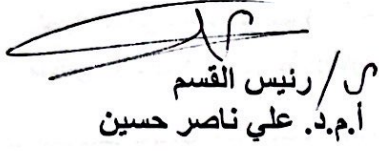 م / رئيس القسم
أ.م.د. علي ناصر حسين